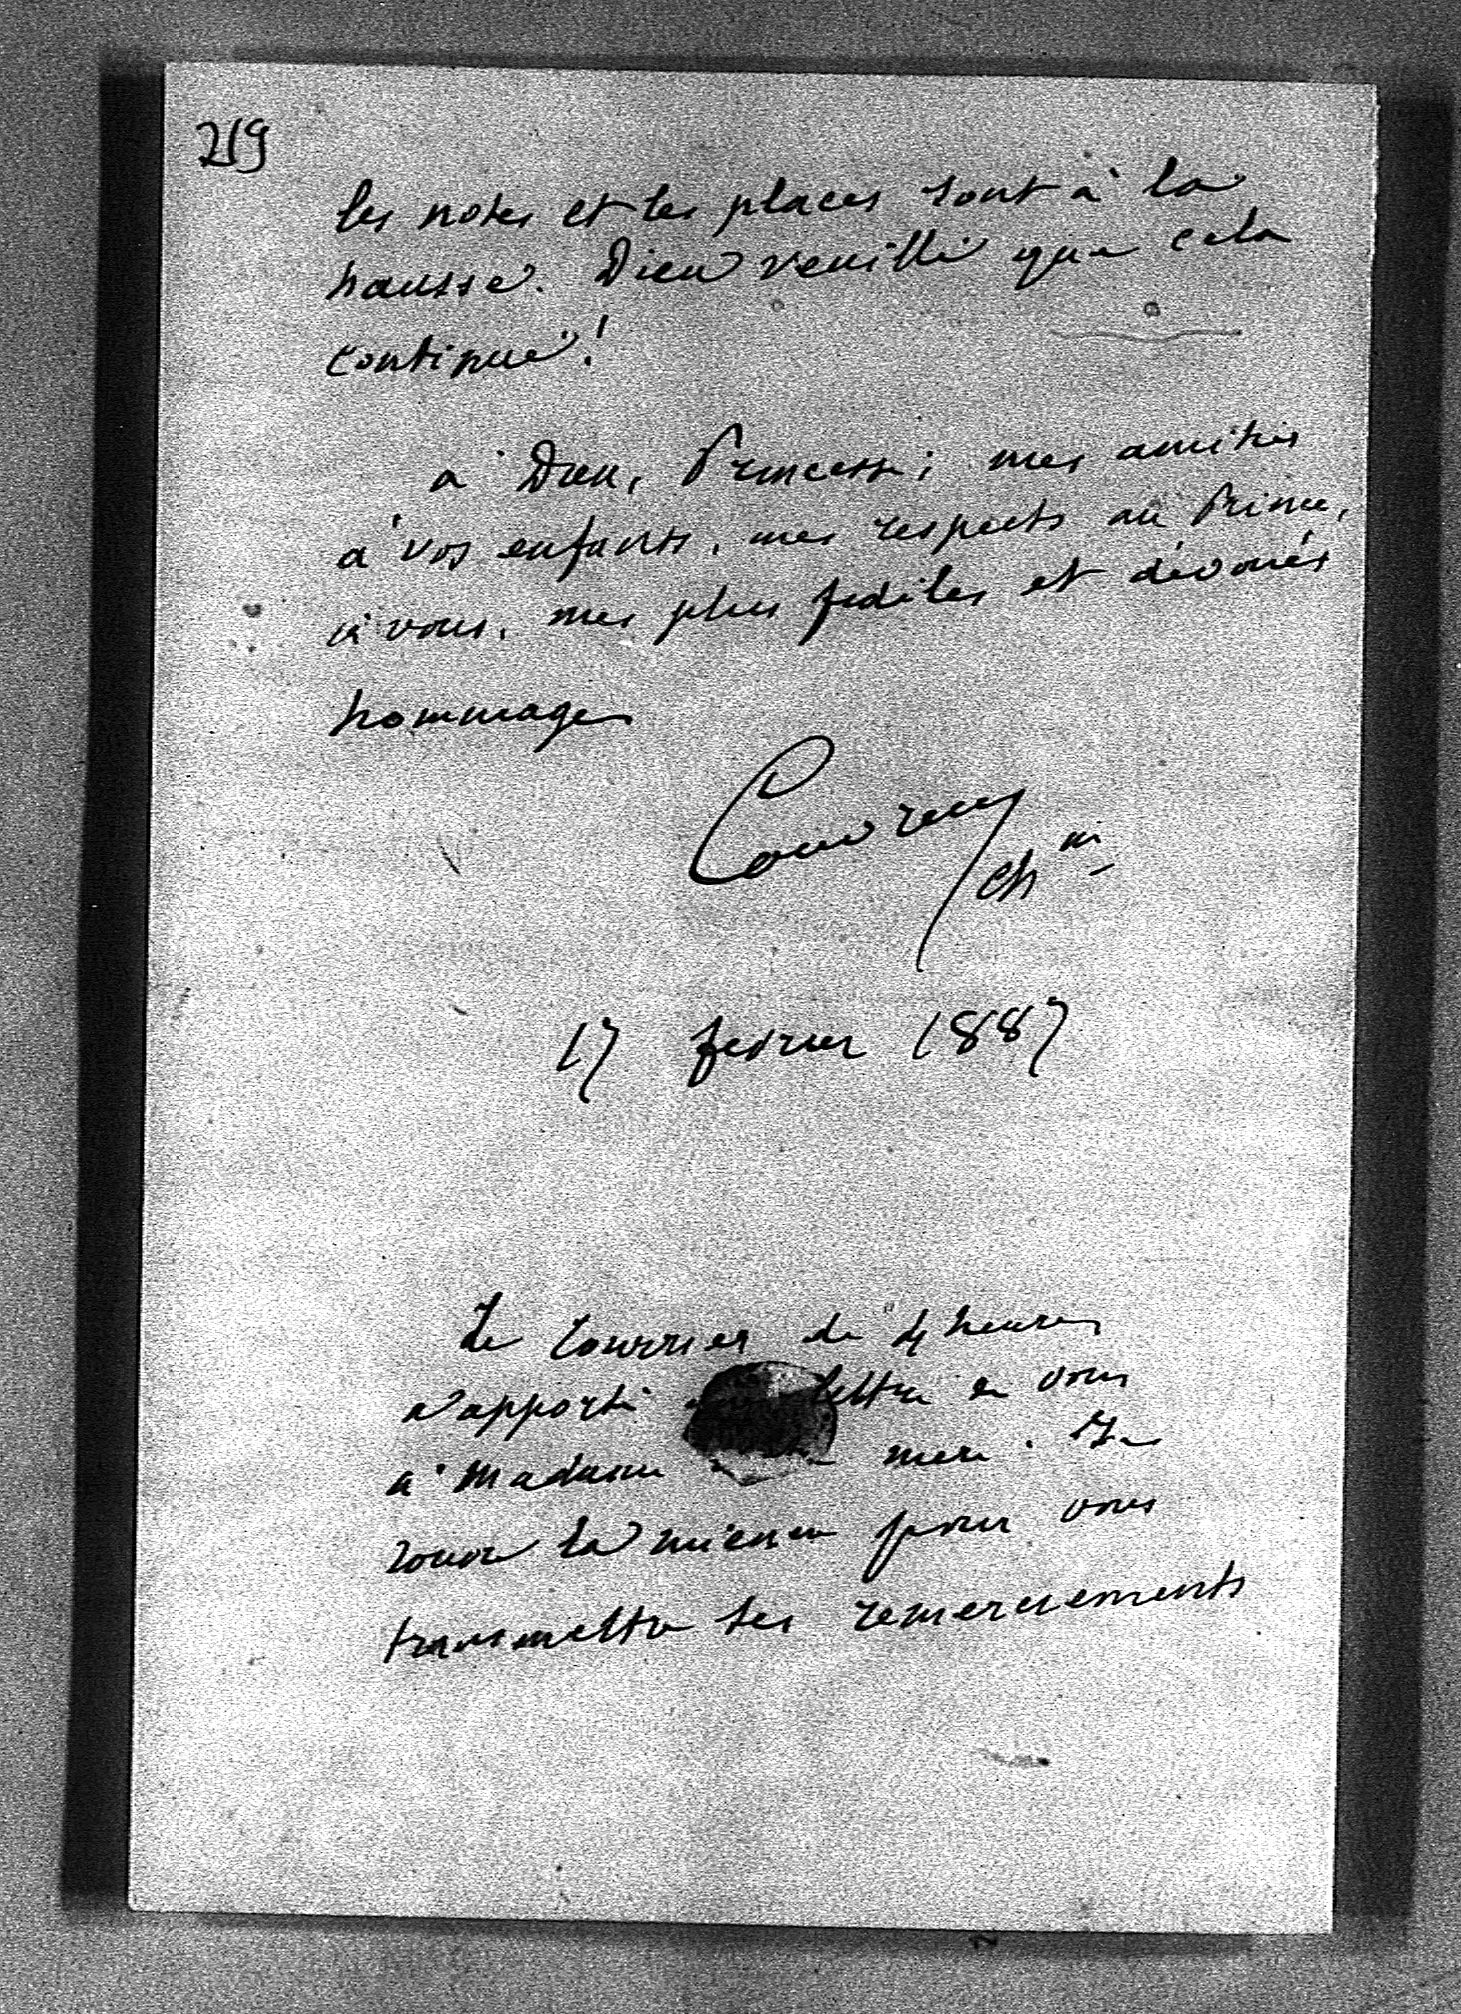 219
les notes et les places sont à la
hausse. Dieu veuille que cela
continue!
à Dieu, Princesse; mes amitiés
à vos enfants, mes respects au Prince,
à vous, mes plus fidèles et dévoués
hommages
Couvreur
17 fevrier 1887
Le Courrier de 4 heures
a apporté lettre de vous
à Madame mère. Je
rouvre la mienne pour vous
transmettre ses remerciements